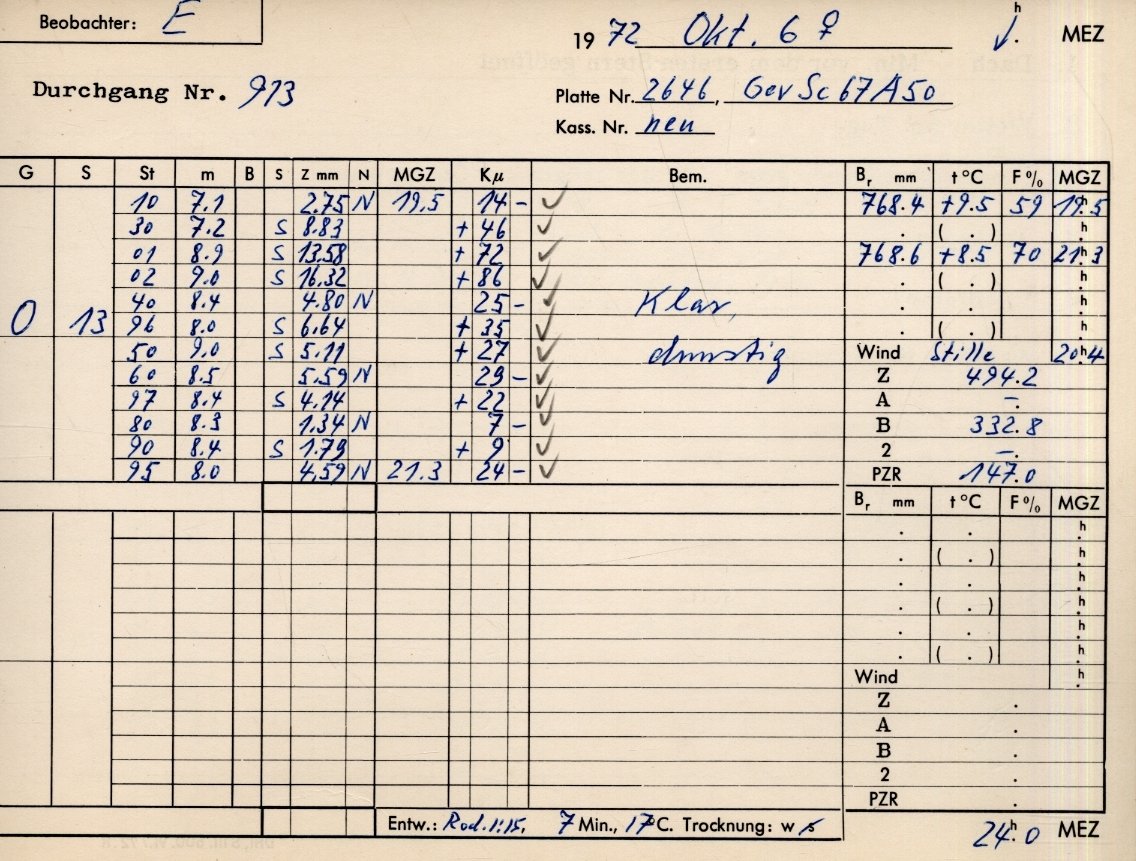 Beobachter: E
19 72 Okt. 6 ♀ h . MEZ
Durchgang Nr. 913
Platte Nr. 2646, Gev Sc 67 A 50
Kass. Nr. neu
G S St m B S Z mm N MGZ Kμ Bem. Br mm t°C F% MGZ
10 7.1 2.75 N 19,5 14 - 768.4 +9.5 59 19h.5
30 7.2 S 8.83 + 46 . ( . ) h .
01 8.9 S 13.58 + 72 768.6 +8.5 70 21h.3
02 9.0 S 16.32 + 86 . ( . ) h .
40 8.4 4.80 N 25 - Klar, . . h .
0 13 96 8.0 S 6.64 + 35 . ( . ) h .
50 9.0 S 5.11 + 27 dunstig Wind Stille 20h.4
60 8.5 5.59 N 29 - Z 494.2
97 8.4 S 4.14 + 22 A -.
80 8.3 1.34 N 7 - B 332.8
90 8.4 S 1.79 + 9 2 -.
95 8.0 4.59 N 21.3 24 - PZR 147.0
Br mm t°C F% MGZ
. . h .
. ( . ) h .
. . h .
. ( . ) h .
. . h .
. ( . ) h .
Wind h .
Z .
A .
B .
2 .
PZR .
Entw.: Rod. 1:15, 7 Min., 17°C. Trocknung: w s
24h.0 MEZ